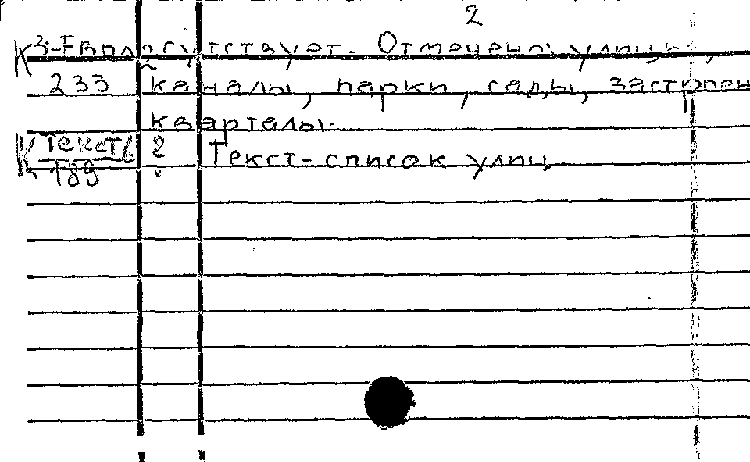 2
К 3-Евп отсутствует. Отмечены улицы,
233 каналы, парки, сады, застроен
кварталы.
К Текст/ 2 Текст-список улиц
189